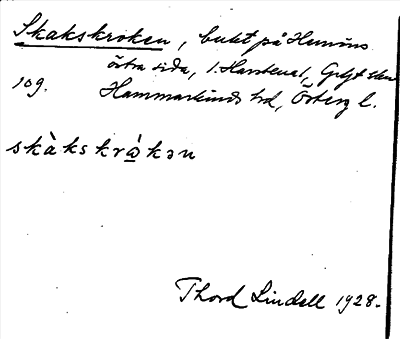 Skakskroken, bukt på Hemöns
östra sida, 1. Hartenal, Gryt skn
109. Hammarkinds hd, Österg l.
skàkskrɷ́kən
Thord Lindell 1928.